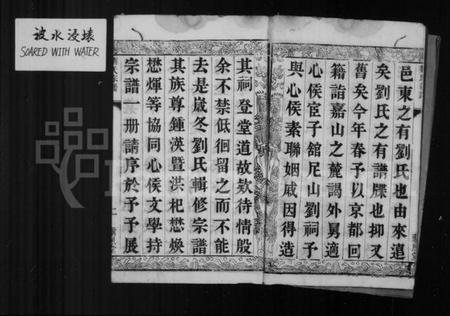 被水浸壞
SOAKED WITH WATER
邑東之有劉氏也由來遠
矣劉氏之有譜牒也抑又
舊矣今年春予以京都回
籍詣嘉山之麓謁外舅適
心侯宦子館足山劉祠予
與心侯素聯姻戚因得造
其祠登堂道故欵待情殷
余不禁低徊留之而不能
去是歲冬劉氏輯修宗譜
其族尊鍾渶暨洪杞懋煥
懋煇等協同心侯文學持
宗譜一册請序於予予展